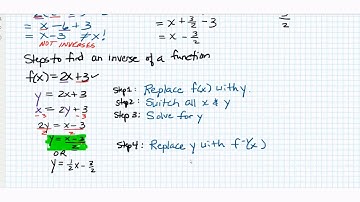 = x - 6 + 3
= x - 3 ≠ x!
NOT INVERSES
= x + 3/2 - 3
= x - 3/2
3/2
Steps to find an inverse of a function
f(x) = 2x + 3
y = 2x + 3
x = 2y + 3
-3 -3
2y = x - 3
2 2
y = x - 3 / 2
OR
y = 1/2 x - 3/2
Step 1: Replace f(x) with y.
Step 2: Switch all x & y
Step 3: Solve for y
Step 4: Replace y with f⁻¹(x)